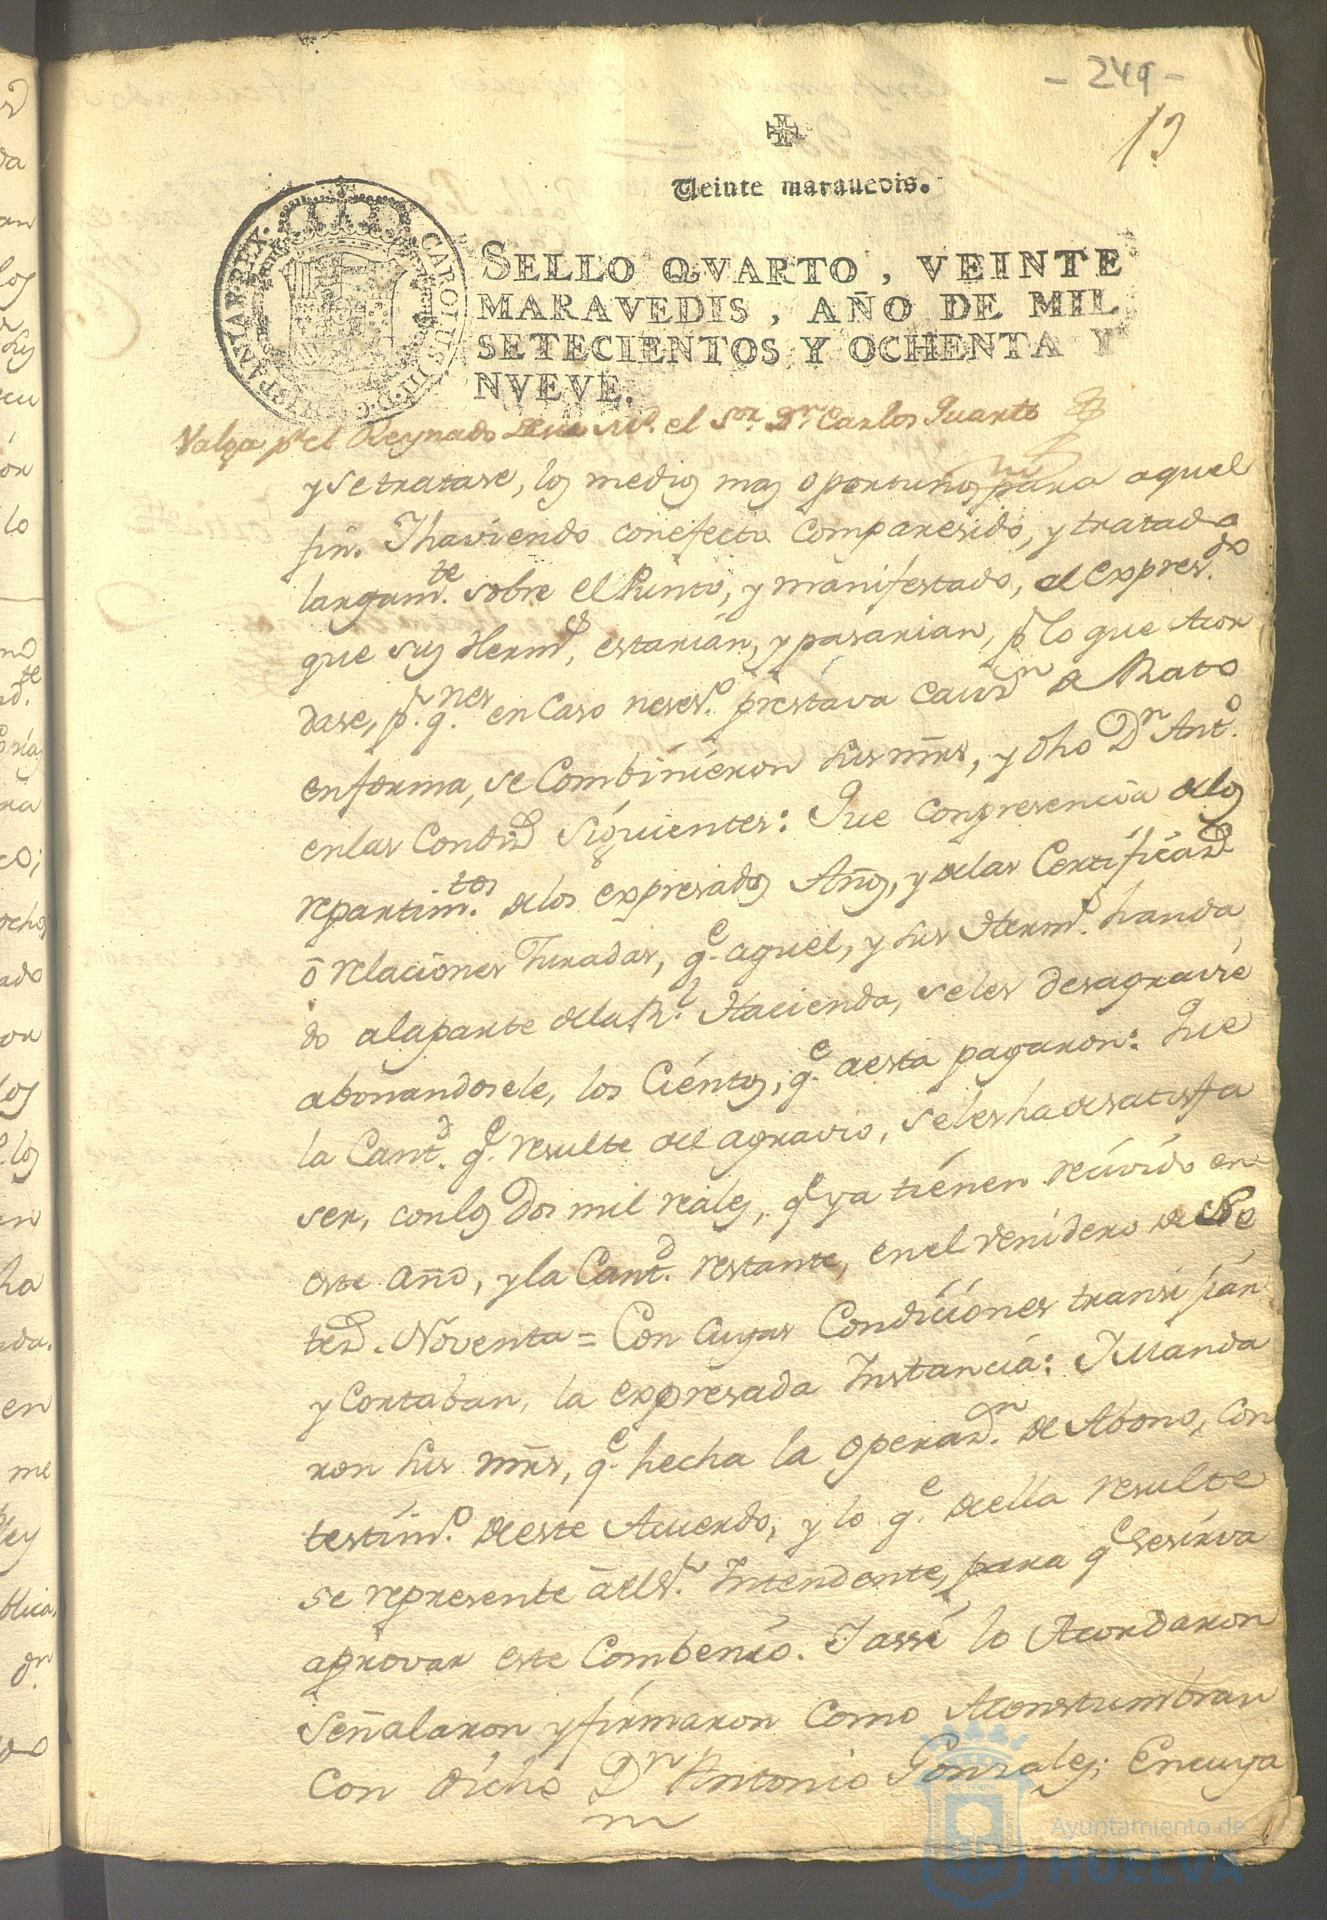 - 249 -
19
Veinte marauedis.
CAROLUS III. D. G. HISPANIAR. REX.
SELLO QVARTO, VEINTE
MARAVEDIS, AÑO DE MIL
SETECIENTOS Y OCHENTA Y
NVEVE.
Valga pa. el Reynado de su M. el Sor. Dn. Carlos Quarto
y se tratase, los medios mas oportunos para aquel
fin. Y haviendo con efecto comparesido, y tratado
largamte. sobre el Punto, y manifestado, el expresdo.
que sus Hermos, estarian, y pasarian, pr lo que Acor
dase, pr. qnes. en caso neses.o prestava causn. de Rato
en forma, se combinieron sus mrs, y dho Dn. Anto.
en las Condis siguientes: Que con presencia de los
repartimtos. de los expresados Años, y de las Certificas
ó relaciones Juradas, qe. aquel, y sus Hermos. han da
do a la parte de la Rl. Hacienda, se les desagravie
abonandosele, los Cientos, qe. a esta pagaron: Que
la Cantd. qe. resulte del agravio, se les ha de satisfa
ser, con los Dos mil reales, qe ya tienen recivido en
este año, y la Cantd. restante, en el venidero de Se
ted. Noventa = Con cuyas Condiciones transijian
y cortaban, la expresada Instancia: Y Manda
ron sus mrs, qe. hecha la operazn. de Abono, con
testimo. de este Acuerdo, y lo qe. de ella resulte
se represente ā el Sr. Intendente, para qe se sirva
aprovar este Combenio. Y assi lo Acordaron
señalaron y firmaron como Aconstumbran
con dicho Dn Antonio Gonzales; En cuya
Ayuntamiento de
HUELVA